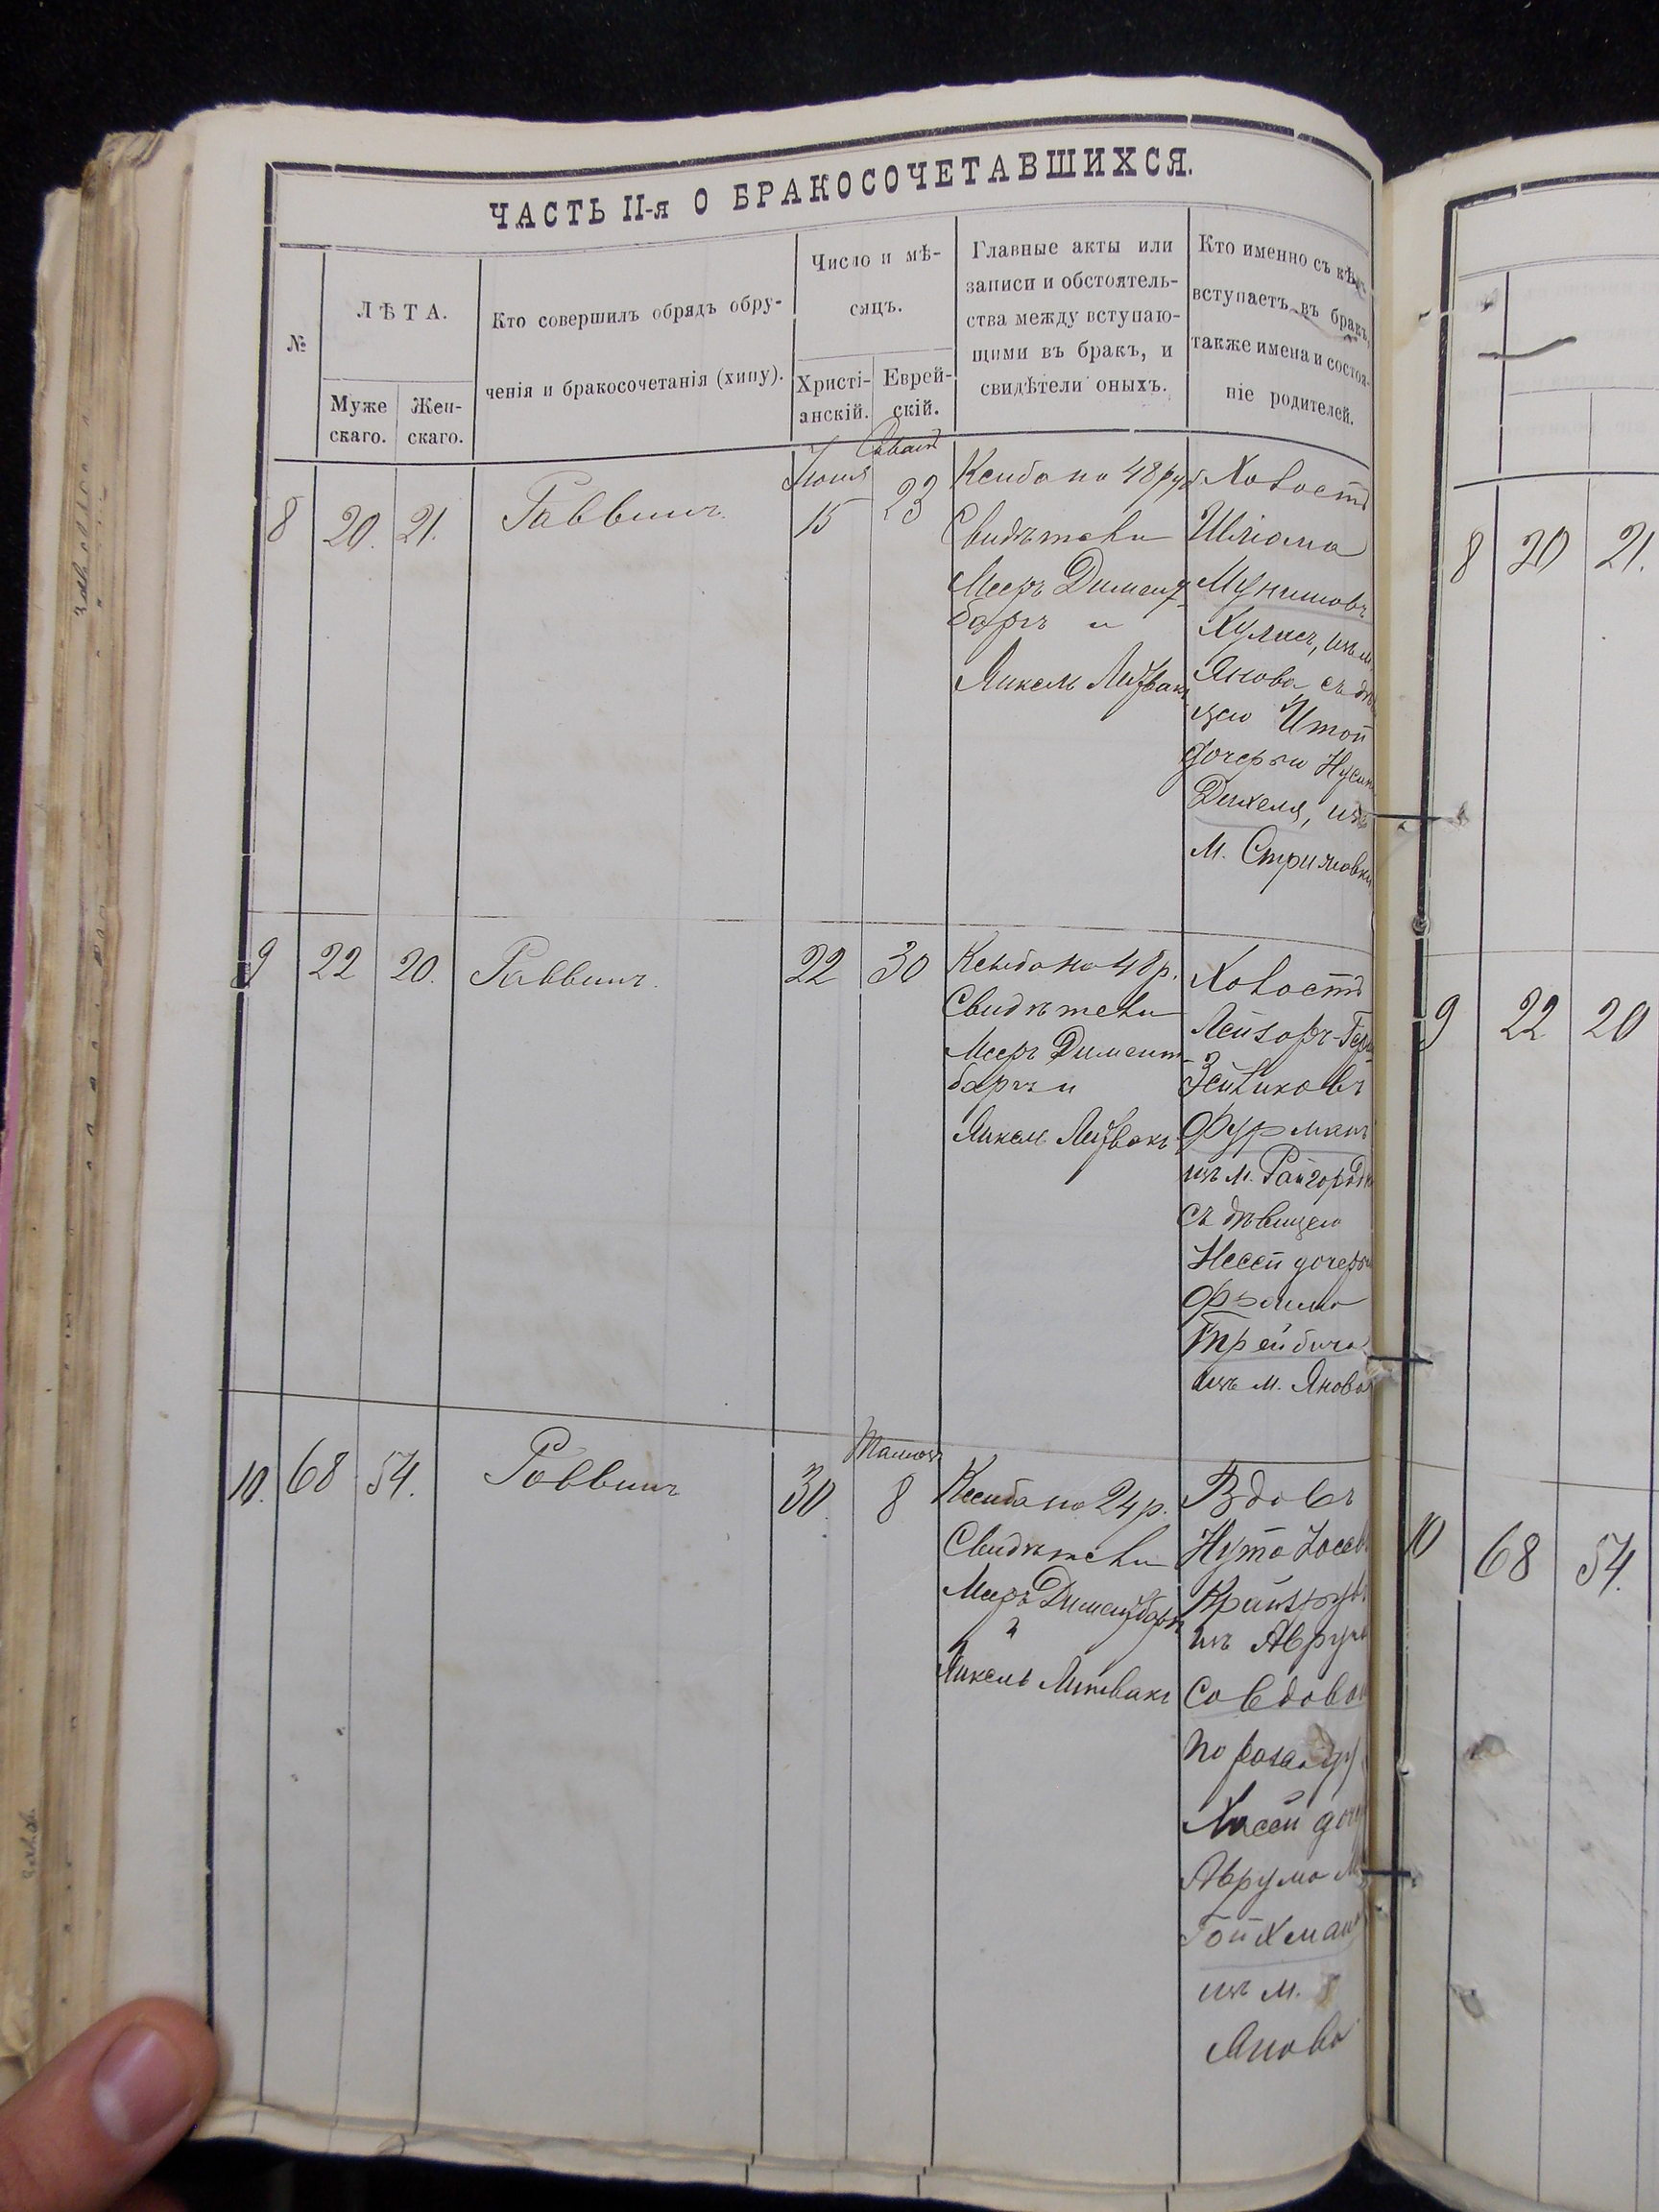 ЧАСТЬ II-я О БРАКОСОЧЕТАВШИХСЯ.
№
ЛѢТА.
Муже
скаго.
Жен-
скаго.
Кто совершилъ обрядъ обру-
ченія и бракосочетанія (хипу).
Число и мѣ-
сяцъ.
Христі-
анскій.
Еврей-
скій.
Главные акты или
записи и обстоятель-
ства между вступаю-
щими въ бракъ, и
свидѣтели оныхъ.
Кто именно съ кѣмъ
вступаетъ въ бракъ,
также имена и состоя-
ніе родителей.
8
20.
21.
Раввинъ
Іюня
15
23
Ксиба на 48 руб
Свидѣтели
Мееръ Димент
баргъ и
Янкель Литвакъ
Холостъ
Шліома
Мунишовъ
Кулисъ, изъ м.
Янова, съ дѣ
цею Итой
дочерью
Дихеля, изъ
м. Стрижовки
9
22
20.
Раввинъ.
22
30
Ксиба на 48 р.
Свидѣтели
Мееръ Димент
баргъ и
Янкель Литвакъ
Холостъ
Лейзоръ-Герш
Зейликовъ
Фурманъ
изъ м. Райгородка
съ дѣвицею
Несей дочерью
Фроима
Трейбича
изъ м. Янова
10.
68
54.
Раввинъ
30
Тамузъ
8
Ксиба на 24 р.
Свидѣтели
Мееръ Диментбаргъ
и
Янкель Литвакъ
Вдовъ
Нута Іосев
изъ
со вдовой
по
Хасей доч
Аврума М
Гойхман
изъ м.
Янова
8
20
21.
9
22
20
10
68
54.